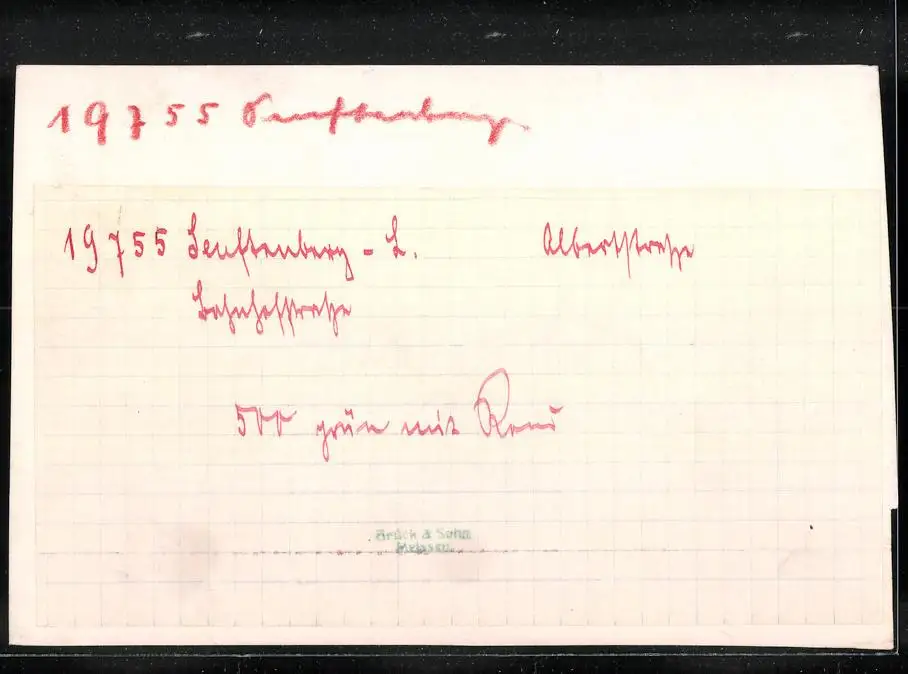 19755 Senftenberg.
19755 Senftenberg - L. Albertstraße
Bahnhofstraße
500 grün mit Rand
Brück & Sohn
Meissen.